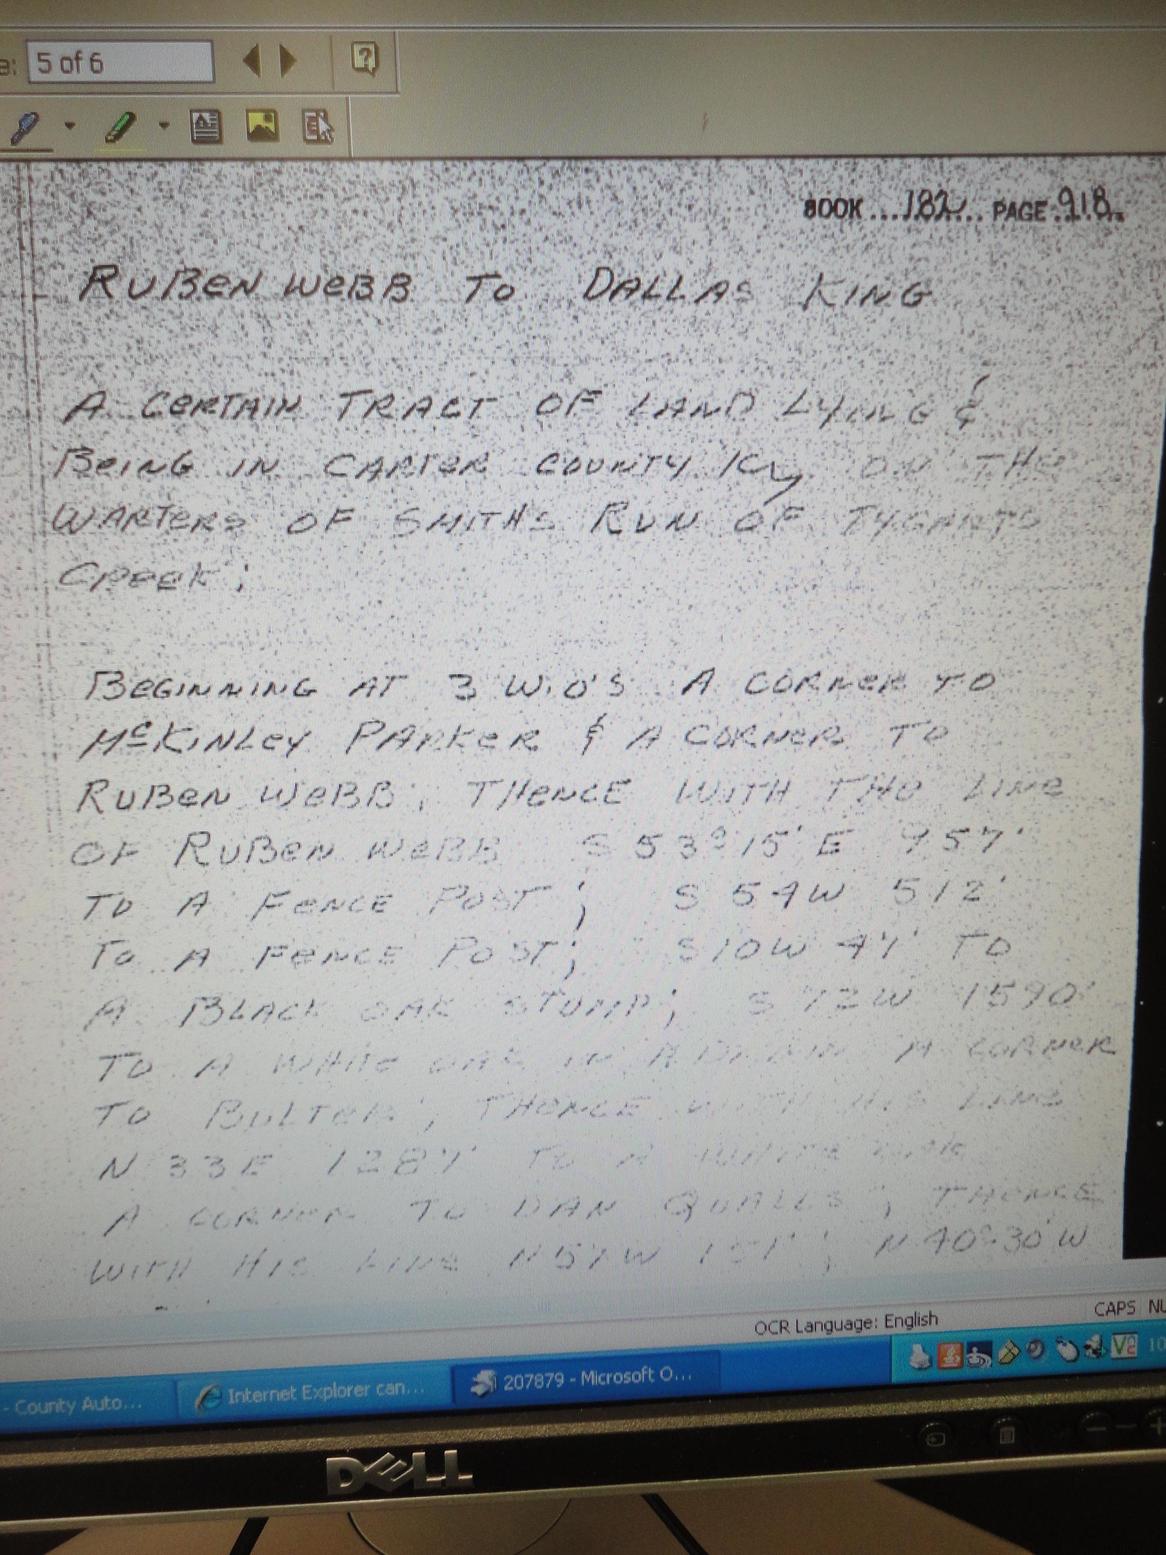 5 of 6
BOOK ... 182 ... PAGE 918
RUBEN WEBB TO DALLAS KING
A CERTAIN TRACT OF LAND LYING &
BEING IN CARTER COUNTY Ky ON THE
WARTERS OF SMITHS RUN OF TYGARTS
CREEK;
BEGINNING AT 3 W.O'S A CORNER TO
McKINLEY PARKER & A CORNER TO
RUBEN WEBB, THENCE WITH THE LINE
OF RUBEN WEBB S 53° 15' E 957'
TO A FENCE POST; S 54 W 512'
TO A FENCE POST; S 10 W 47' TO
A BLACK OAK STUMP; S 72 W 1590'
TO A WHITE OAK IN A DRAIN A CORNER
TO BULTER, THENCE WITH HIS LINE
N 33 E 1287' TO A WHITE OAK
A CORNER TO DAN QUALLS, THENCE
WITH HIS LINE N 57 W 151'; N 40° 30' W
OCR Language: English CAPS
- County Auto... Internet Explorer can... 207879 - Microsoft O... V2 10
DELL